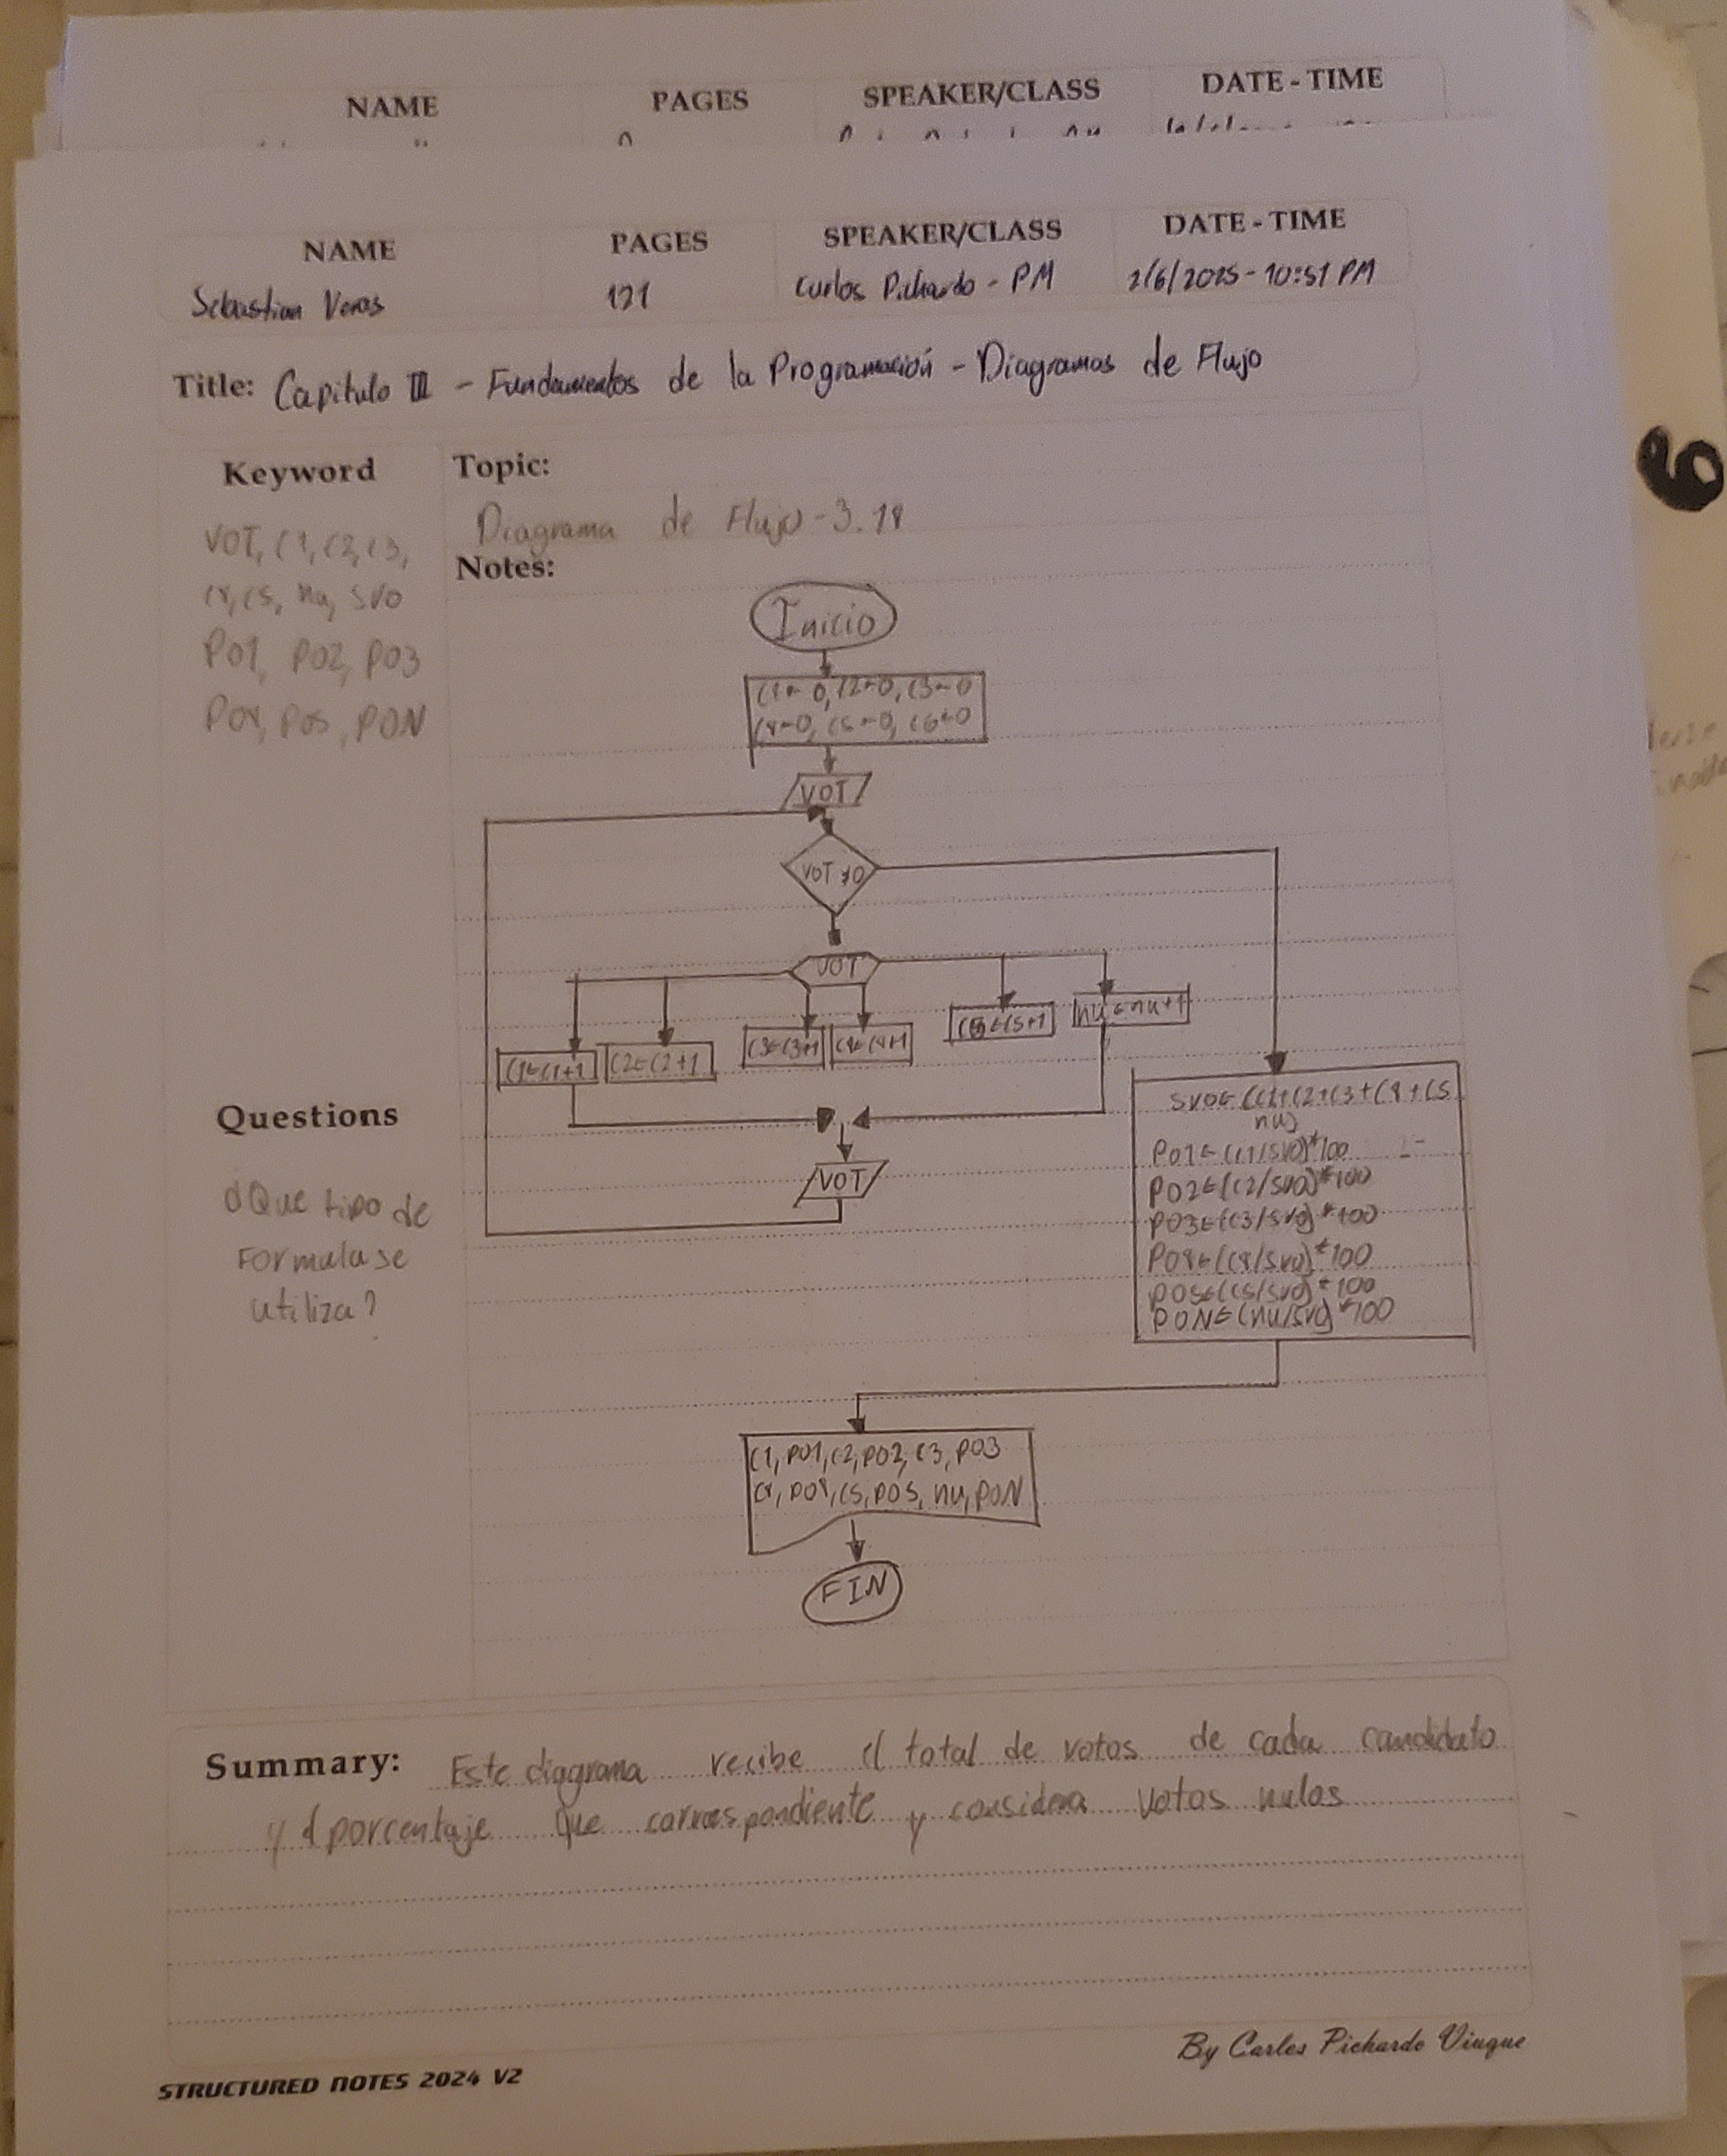 NAME PAGES SPEAKER/CLASS DATE - TIME
NAME PAGES SPEAKER/CLASS DATE - TIME
Sebastian Veras 121 Carlos Pichardo - PM 2/6/2025 - 10:51 PM
Title: Capitulo III - Fundamentos de la Programación - Diagramas de Flujo
Keyword
VOT, C1, C2, C3,
C4, C5, nu, SVO
PO1, PO2, PO3
PO4, PO5, PON
Topic:
Diagrama de Flujo - 3.18
Notes:
Inicio
C1←0, C2←0, C3←0
C4←0, C5←0, C6←0
VOT
VOT ≠0
VOT
C1←C1+1 C2←C2+1 C3←C3+1 C4←C4+1 C5←C5+1 nu←nu+1
VOT
SVO←(C1+C2+C3+C4+C5
nu)
PO1←(C1/SVO)*100
PO2←(C2/SVO)*100
PO3←(C3/SVO)*100
PO4←(C4/SVO)*100
PO5←(C5/SVO)*100
PON←(nu/SVO)*100
C1, PO1, C2, PO2, C3, PO3
C4, PO4, C5, PO5, nu, PON
FIN
Questions
¿Que tipo de
Formula se
utiliza?
Summary: Este diagrama recibe el total de votos de cada candidato
y el porcentaje que correspondiente y considera votos nulos
By Carlos Pichardo Viuque
STRUCTURED NOTES 2024 V2
6